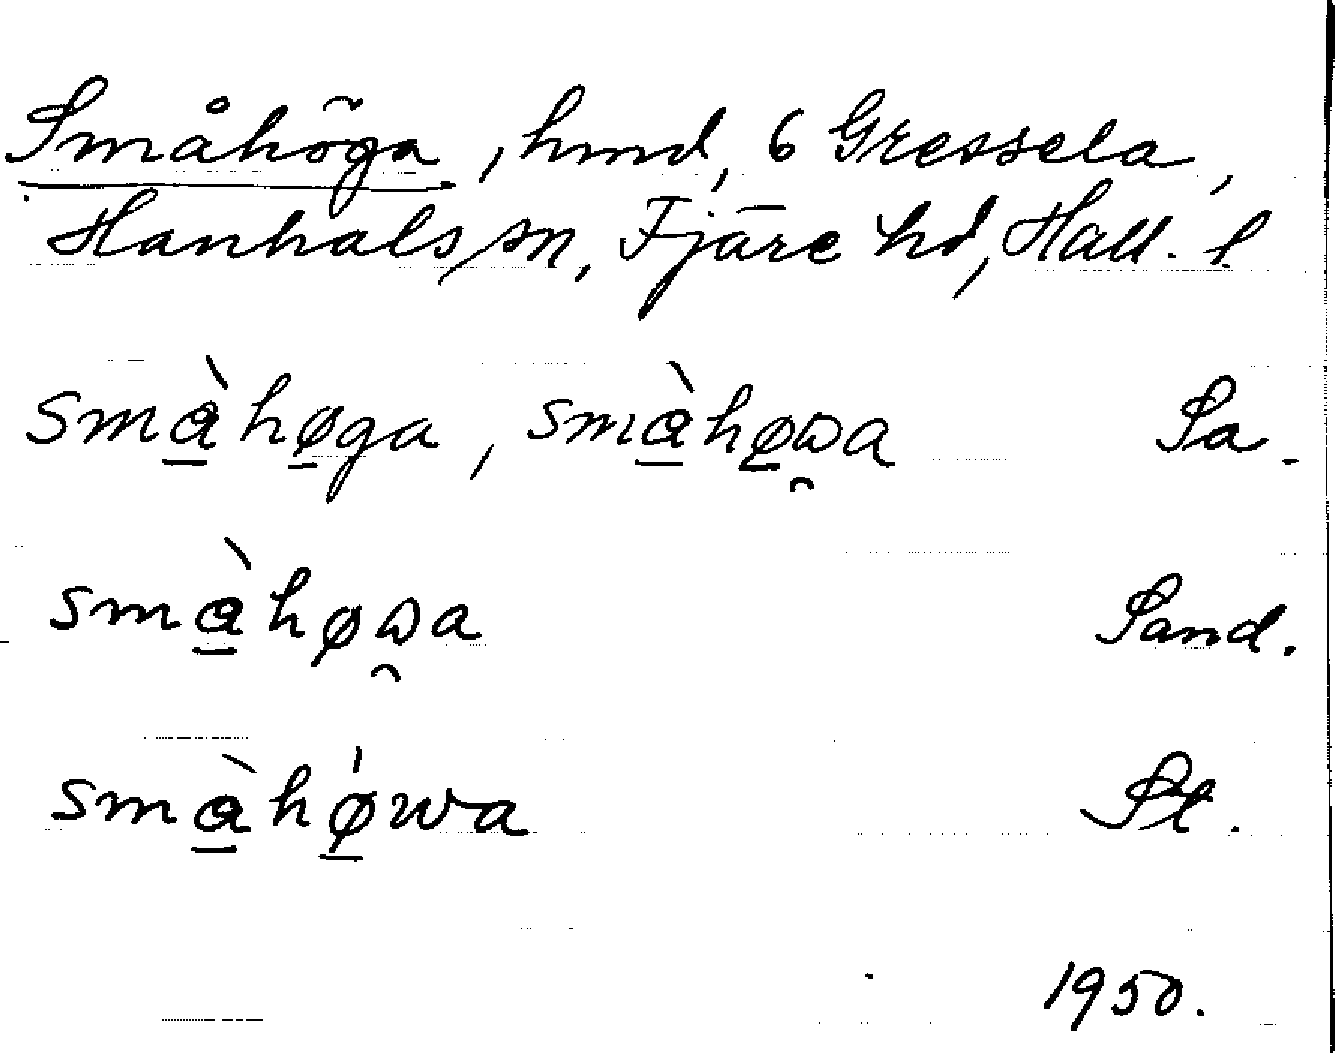 Småhöga, hmd, 6 Gressela,
Hanhals sn, Fjäre hd, Hall. l
smàhøga, smàhøωa Sa.
smàhøωa Sand.
smàhǿwa St.
1950.